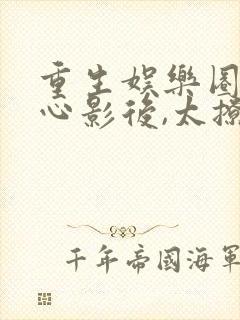 重生娛樂圈
心影後,太撩
千年帝國海軍